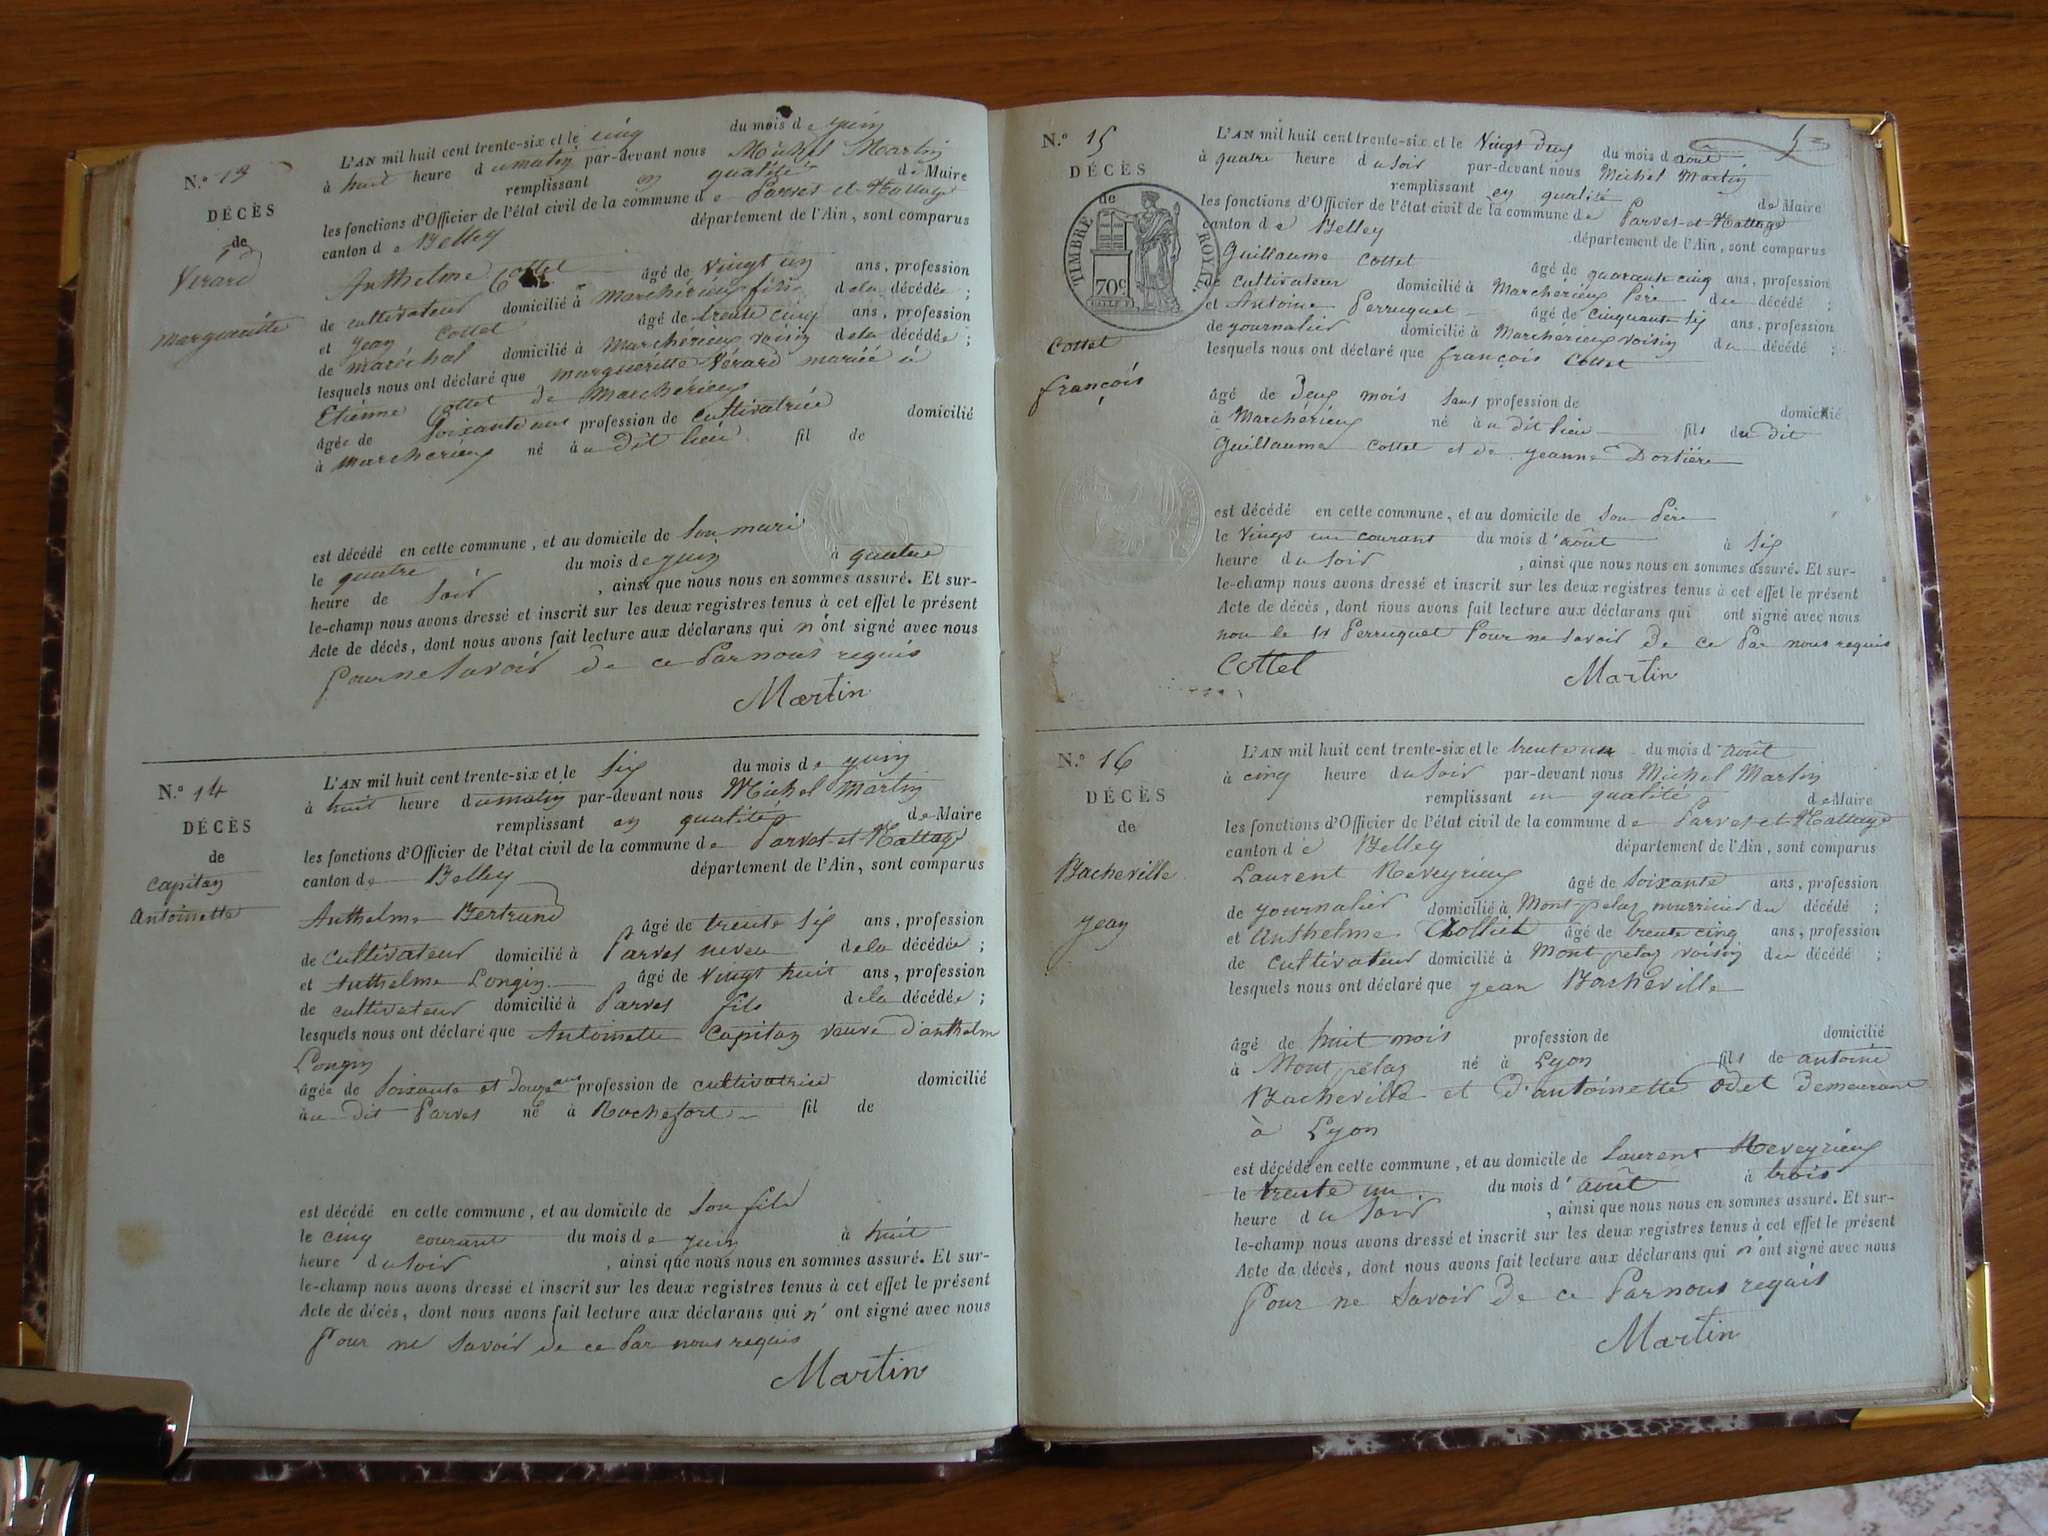 N.º 13
DÉCÈS
de
Verard
Marguerite
L'AN mil huit cent trente-six et le cinq du mois de juin
à huit heure du matin par-devant nous Michel Martin
remplissant en qualité de Maire
les fonctions d'Officier de l'état civil de la commune de Parves-et-Nattage
canton de Belley département de l'Ain, sont comparus
Anthelme Cottet âgé de vingt un ans, profession
de cultivateur domicilié à Marchérieux fils de la décédée ;
et Jean Cottet âgé de trente cinq ans, profession
de maréchal domicilié à Marchérieux voisin de la décédée ;
lesquels nous ont déclaré que margueritte Vérard mariée à
Etienne Cottet de Marchérieux
âgée de soixante ans profession de cultivatrice domicilié
à Marchérieux né au dit lieu fil de
est décédé en cette commune, et au domicile de son mari
le quatre du mois de juin à quatre
heure de soir , ainsi que nous nous en sommes assuré. Et sur-
le-champ nous avons dressé et inscrit sur les deux registres tenus à cet effet le présent
Acte de décès, dont nous avons fait lecture aux déclarans qui n'ont signé avec nous
Pour ne savoir de ce par nous requis
Martin
N.º 14
DÉCÈS
de
Capitan
Antoinette
L'AN mil huit cent trente-six et le six du mois de juin
à huit heure du matin par-devant nous Michel Martin
remplissant en qualité de Maire
les fonctions d'Officier de l'état civil de la commune de Parves-et-Nattage
canton de Belley département de l'Ain, sont comparus
Anthelme Bertrand âgé de trente six ans, profession
de cultivateur domicilié à Parves neveu de la décédée ;
et Anthelme Longin âgé de vingt huit ans, profession
de cultivateur domicilié à Parves fils de la décédée ;
lesquels nous ont déclaré que Antoinette Capitan veuve d'anthelm
Longin
âgée de soixante et douze ans profession de cultivatrice domicilié
au dit Parves né à Rochefort fil de
est décédé en cette commune, et au domicile de son fils
le cinq courant du mois de juin à huit
heure du soir , ainsi que nous nous en sommes assuré. Et sur-
le-champ nous avons dressé et inscrit sur les deux registres tenus à cet effet le présent
Acte de décès, dont nous avons fait lecture aux déclarans qui n'ont signé avec nous
Pour ne savoir de ce par nous requis
Martin
5
N.º 15
DÉCÈS
de
TIMBRE ROYAL
70c
Cottet
françois
L'AN mil huit cent trente-six et le Vingt deux du mois d'août
à quatre heure du soir par-devant nous Michel Martin
remplissant en qualité de Maire
les fonctions d'Officier de l'état civil de la commune de Parves-et-Nattage
canton de Belley département de l'Ain, sont comparus
Guillaume Cottet âgé de quarante cinq ans, profession
de cultivateur domicilié à Marchérieux Père du décédé ;
et Antoine Perruquet âgé de cinquante six ans, profession
de journalier domicilié à Marchérieux voisin du décédé ;
lesquels nous ont déclaré que françois Cottet
âgé de Deux mois sans profession de domicilié
à Marchérieux né au dit lieu fils du dit
Guillaume Cottet et de jeanne Dortière
est décédé en cette commune, et au domicile de son Père
le vingt un courant du mois d'août à six
heure du soir , ainsi que nous nous en sommes assuré. Et sur-
le-champ nous avons dressé et inscrit sur les deux registres tenus à cet effet le présent
Acte de décès, dont nous avons fait lecture aux déclarans qui ont signé avec nous
non le Perruquet Pour ne savoir de ce Par nous requis
Cottet Martin
N.º 16
DÉCÈS
de
Bacheville
jean
L'AN mil huit cent trente-six et le trente un du mois d'août
à cinq heure du soir par-devant nous Michel Martin
remplissant en qualité de Maire
les fonctions d'Officier de l'état civil de la commune de Parves-et-Nattage
canton de Belley département de l'Ain, sont comparus
Laurent Reveyrieux âgé de soixante ans, profession
de journalier domicilié à Mont-pelas nourricier du décédé ;
et Anthelme Cholliet âgé de trente cinq ans, profession
de cultivateur domicilié à Mont pelas voisin du décédé ;
lesquels nous ont déclaré que jean Bacheville
âgé de huit mois profession de domicilié
à Mont pelas né à Lyon fils de antoine
Bacheville et d'antoinette odet demeurant
à Lyon
est décédé en cette commune, et au domicile de Laurent Reveyrieux
le trente un du mois d'août à trois
heure du soir , ainsi que nous nous en sommes assuré. Et sur-
le-champ nous avons dressé et inscrit sur les deux registres tenus à cet effet le présent
Acte de décès, dont nous avons fait lecture aux déclarans qui n'ont signé avec nous
Pour ne savoir de ce Par nous requis
Martin